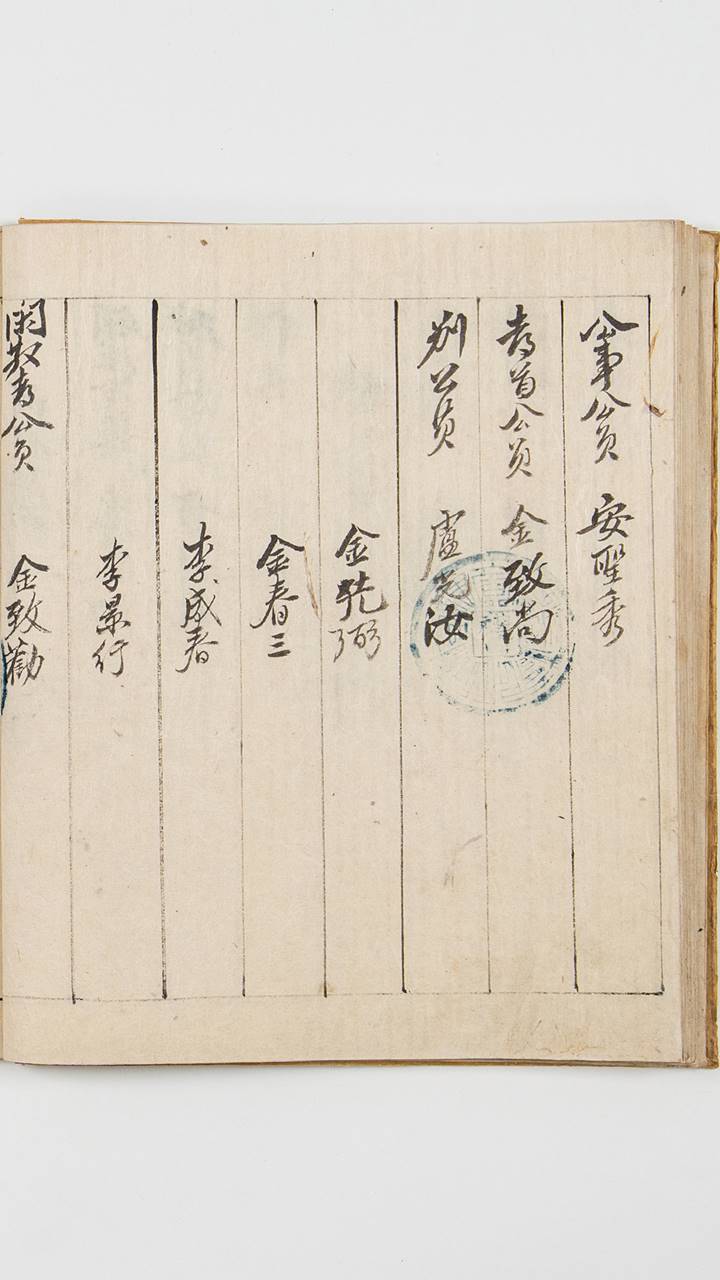 公事公員 安聖秀
都首公員 金致尚
別公員 盧允汝
金弼
金春三
李成春
李景行
公員 金致勸